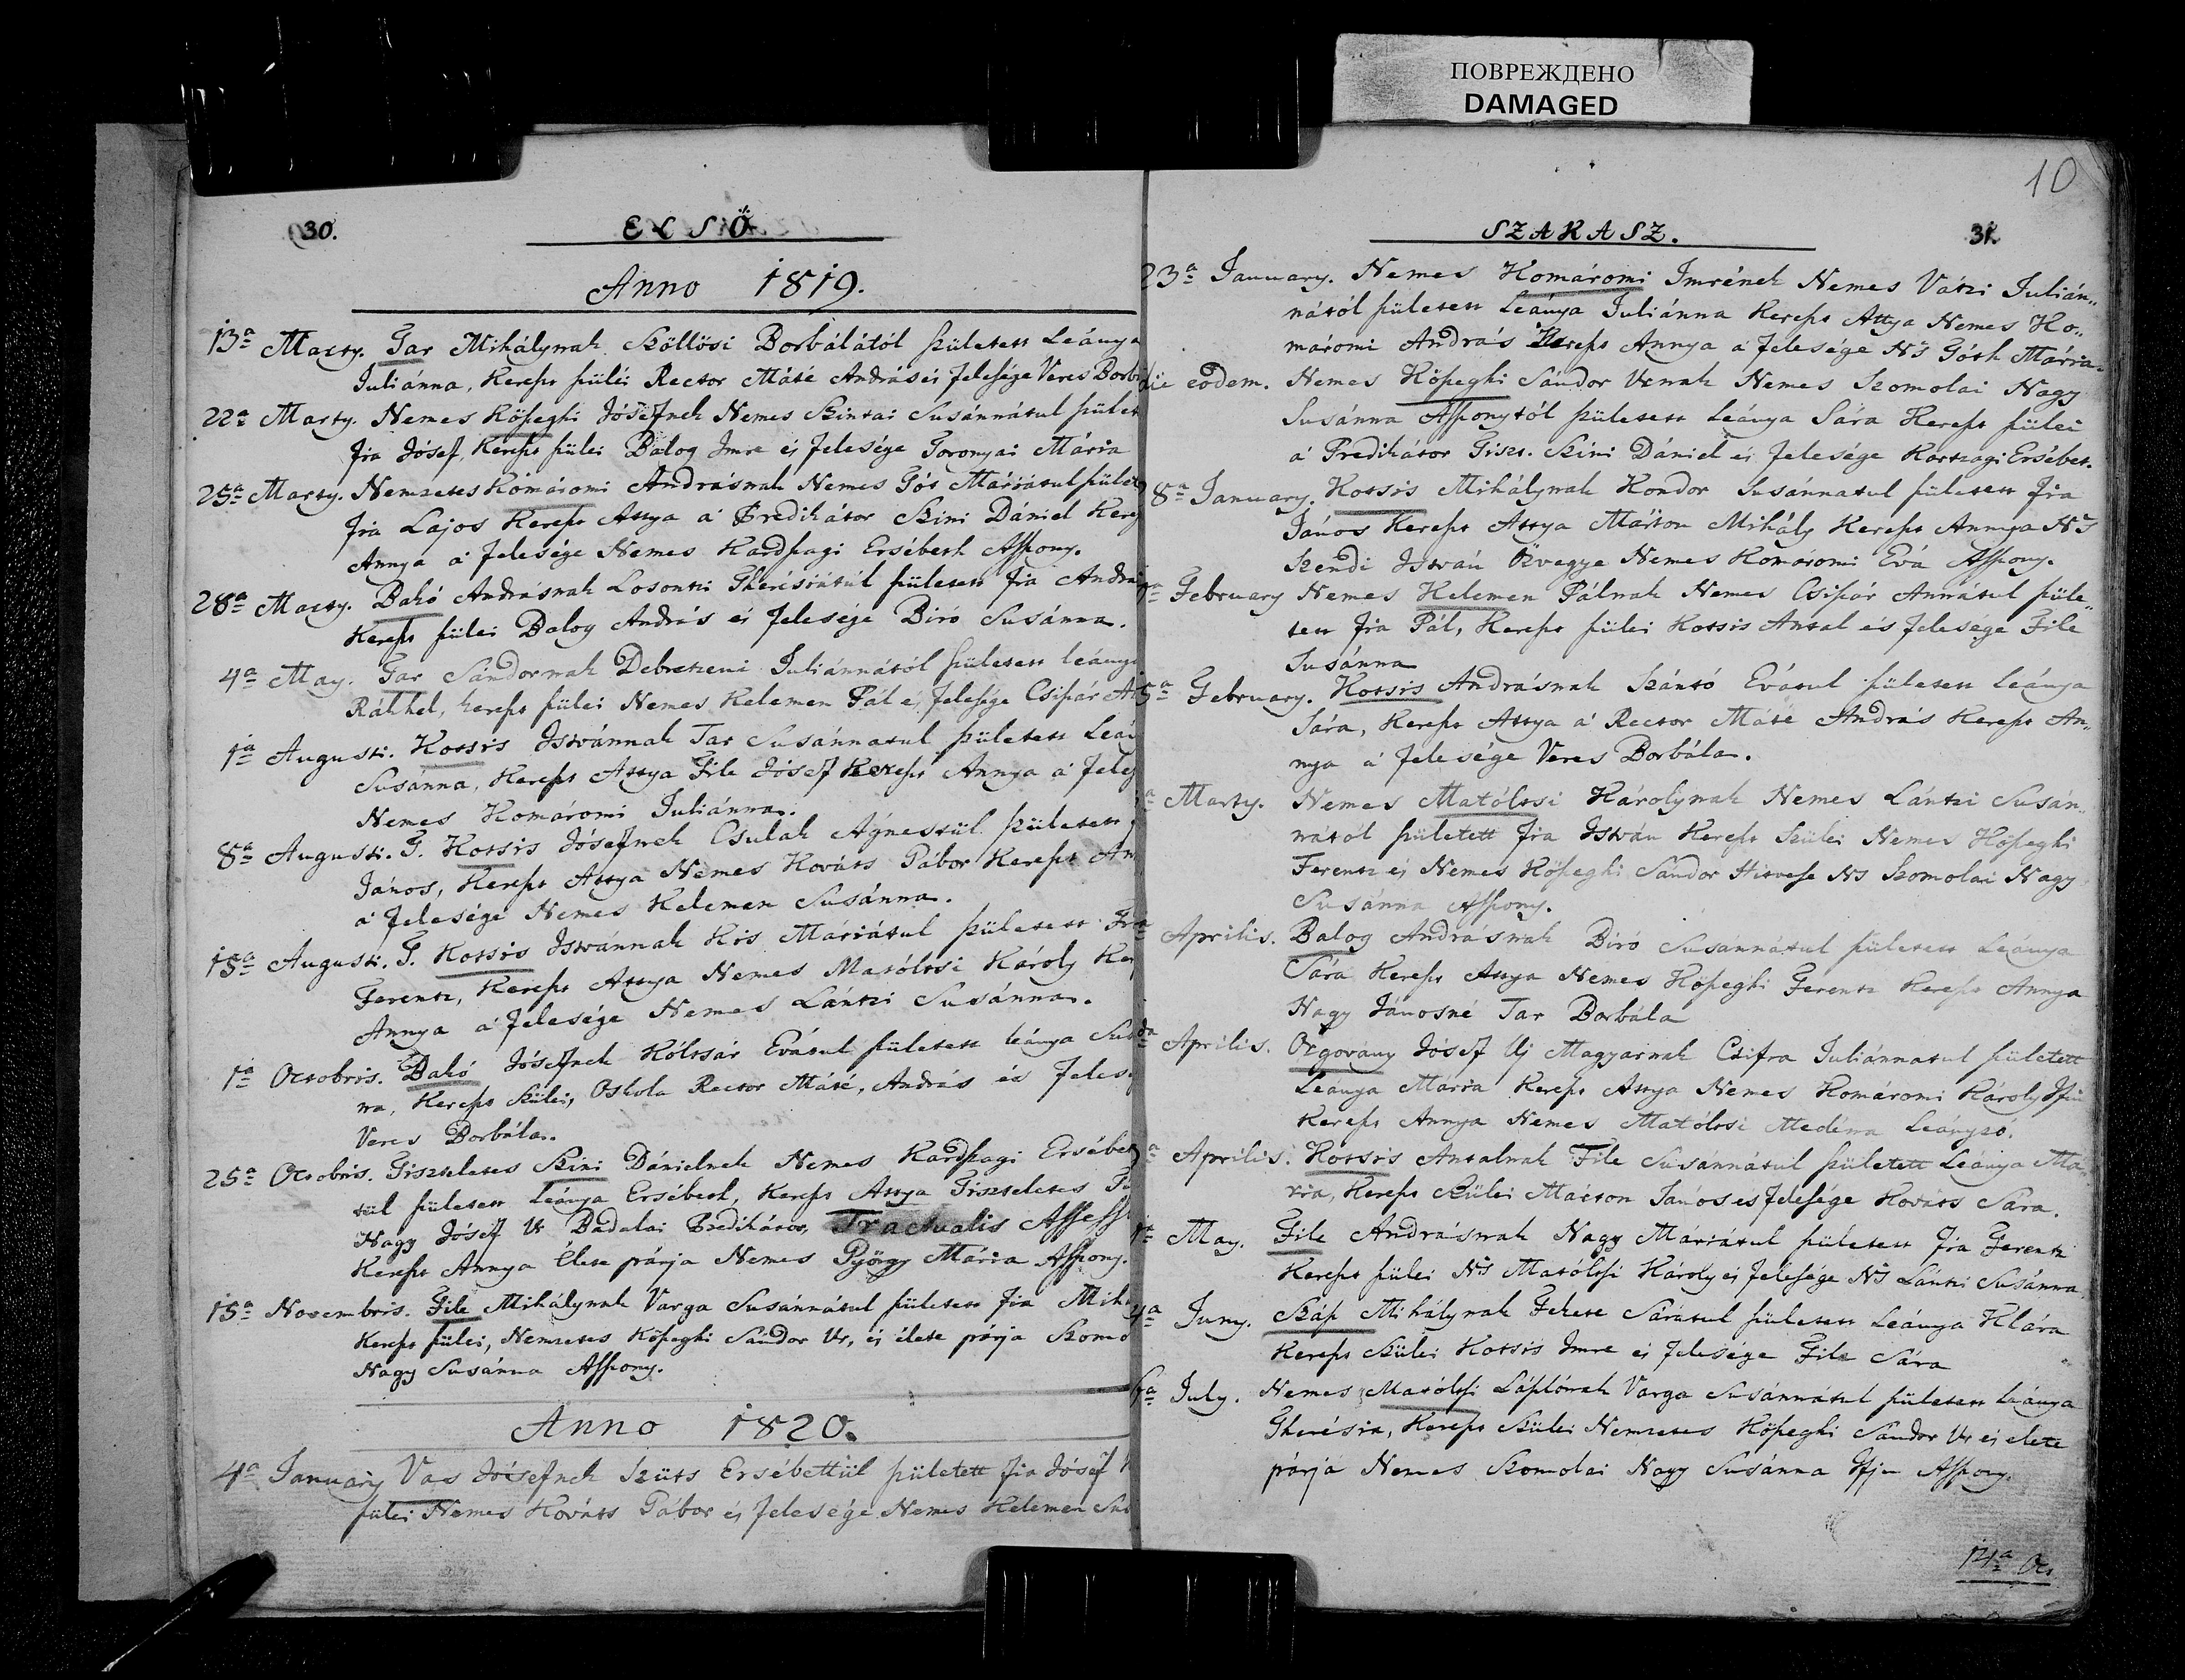 ПОВРЕЖДЕНО
DAMAGED
10
30.
ELSŐ
Anno 1819.
13a Marty. Tar Mihálynak Szöllősi Borbálától született Leánya
Juliánna, Kereszt szüléi Rector Máté András és felesége Veres Borb
22a Marty. Nemes Köszeghi Jósefnek Nemes Szintai Susánnátul szület
fia Jósef, Kereszt szülei Balog Imre és felesége Toronyai Mária
25a Marty. Nemzetes Komáromi Andrásnak Nemes Gót Máriátul szület
fia Lajos Kereszt Attya a' Predikátor Szini Dániel Keresz
Annya a' felesége Nemes Kardszagi Ersébeth Asszony.
28a Marty. Bakó Andrásnak Losontzi Therésiátúl született fia Andrá
Kereszt szülei Balog András és felesége Biró Susánna.
4a May. Tar Sándornak Debretzeni Juliánnától született leánya
Rákhel, kereszt szülei Nemes Kelemen Pál és felesége Csiszár
1a Augusti. Kotsis Istvánnak Tar Susánnatul született Leá
Susánna, Kereszt Attya File Jósef Kereszt Annya a' feles
Nemes Komáromi Juliánna.
8a Augusti. G. Kotsis Jósefnek Csulak Ágnestül született
János, Kereszt Attya Nemes Kováts Gábor Kereszt An
a' felesége Nemes Kelemen Susánna.
15a Augusti. G. Kotsis Istvánnak Kis Máriátul született Fia
Ferentz, Kereszt Attya Nemes Matóltsi Károly Ker
Annya a' felesége Nemes Lántzi Susánna.
1a Octobris. Bakó Jósefnek Költsár Evátul született leánya Sus
na, Kereszt Szülei, Oskola Rector Máté András és Feles
Veres Borbála.
25a Octobris. Tiszteletes Szini Dánielnek Nemes Kardszagi Ersébet
túl született Leánya Ersébeth, Kereszt Attya Tiszteletes
Nagy Jósef Ur Badalai Predikátor, Tractualis Assess
Kereszt Annya Élete párja Nemes György Mária Asszony.
15a Novembris. File Mihálynak Varga Susánnátul született fia Mih
Kereszt szülei, Nemzetes Köszeghi Sándor Ur, és élete párja Szomo
Nagy Susánna Asszony.
Anno 1820.
4a January Vas Jósefnek Szüts Ersébettül született fia Jósef
szülei Nemes Kováts Gábor és felesége Nemes Kelemen Sus
SZAKASZ.
31.
23a January. Nemes Komáromi Imrének Nemes Vátzi Julián„
nától született Leánya Juliánna Kereszt Attya Nemes Ko„
máromi András Kereszt Annya a' felesége Ns Góth Mária.
die eodem. Nemes Köszeghi Sándor Urnak Nemes Szomolai Nagy
Susánna Asszonytól született Leánya Sára Kereszt szülei
a' Predikátor Tiszt. Szini Dániel és felesége Kartzagi Ersébet.
8a January. Kotsis Mihálynak Kondor Susánnatul született fia
János Kereszt Attya Márton Mihály Kereszt Annya Ns
Szendi István Özvegye Nemes Komáromi Evá Asszony.
February Nemes Kelemen Pálnak Nemes Csiszár Annátul szüle„
tett fia Pál, Kereszt szülei Kotsis Antal és felesége File
Susánna
5a February. Kotsis Andrásnak Szántó Evátul született leánya
Sára, Kereszt Attya a' Rector Máté András Kereszt An„
nya a' felesége Veres Borbála.
Marty. Nemes Matóltsi Károlynak Nemes Lántzi Susán„
nától született fia István Kereszt Szülei Nemes Köszeghi
Ferentz és Nemes Köszeghi Sándor Hitvese Ns Szomolai Nagy
Susánna Asszony.
Aprilis. Balog Andrásnak Biró Susannátul született Leánya
Sára Kereszt Attya Nemes Köszeghi Ferentz Kereszt Annya
Nagy Jánosné Tar Borbála
Aprilis. Orgovány Jósef Uj Magyarnak Csifra Juliánnatul született
Leánya Mária Kereszt Attya Nemes Komáromi Károly Ifiu
Kereszt Annya Nemes Matóltsi Medéna Leányzó.
Aprilis. Kotsis Antalnak File Susánnátúl született Leánya Má„
ria, Kereszt Szülei Márton János és felesége Kováts Sára.
May. File Andrásnak Nagy Máriátul született fia Ferentz
Kereszt szülei Ns Matóltsi Károly és felesége Ns Lántzi Susánna
Juny. Száp Mihálynak Fekete Sárátul született Leánya Klára
Kereszt Szülei Kotsis Imre és felesége File Sára
July. Nemes Matóltsi Lászlónak Varga Susánnátul született leánya
Therésia, Kereszt Szülei Nemzetes Köszeghi Sándor Ur és elete
párja Nemes Szomolai Nagy Susánna Ifju Asszony.
14a Oc